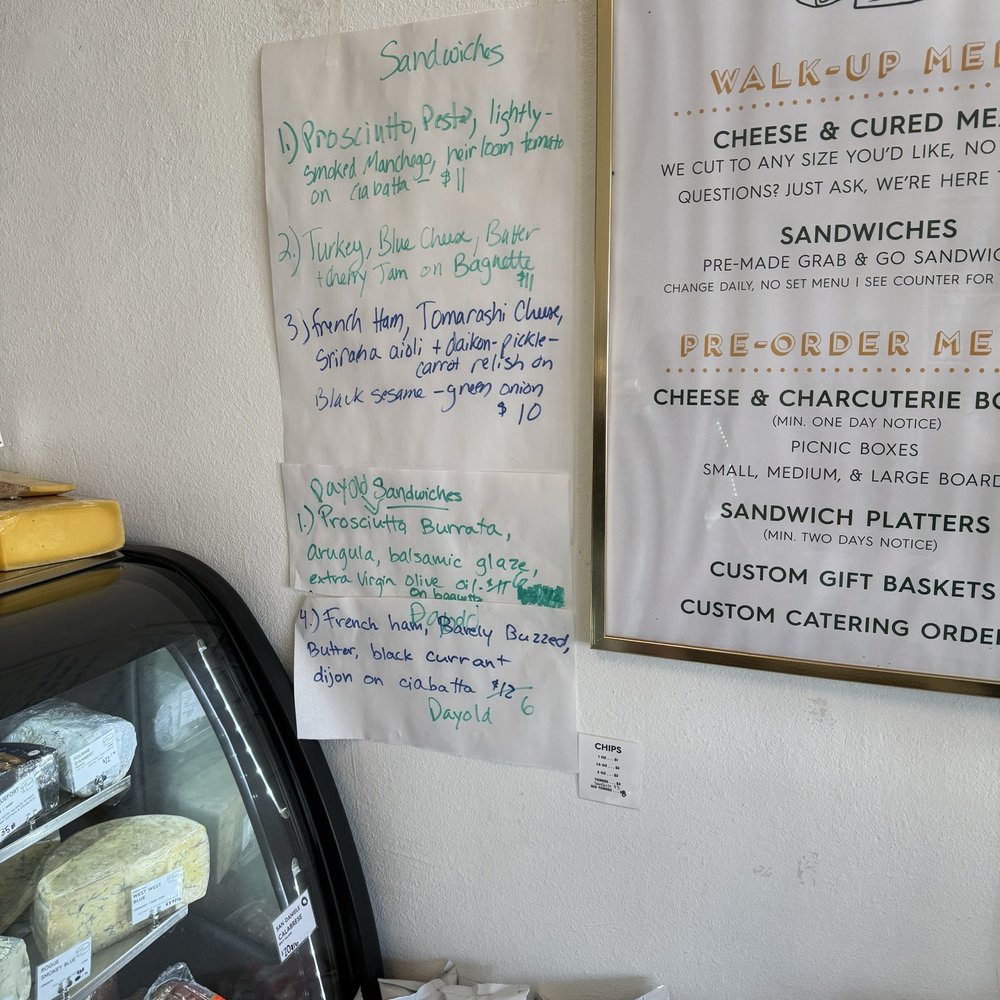 Sandwiches
1.) Prosciutto, Pesto, lightly-
smoked Manchego, heirloom tomato
on ciabatta - $11
2.) Turkey, Blue Cheese, Butter
+ cherry Jam on Baguette
$11
3.) French Ham, Tomarashi Cheese,
Sriracha aioli + daikon-pickle-
carrot relish on
Black sesame - green onion
$10
Dayold Sandwiches
1.) Prosciutto, Burrata,
arugula, balsamic glaze,
extra virgin olive oil. $11 6
on baguette
Dayold
4.) French ham, Barely Buzzed,
Butter, black currant
dijon on ciabatta $12
Dayold 6
WALK-UP ME
CHEESE & CURED ME
WE CUT TO ANY SIZE YOU'D LIKE, NO
QUESTIONS? JUST ASK, WE'RE HERE T
SANDWICHES
PRE-MADE GRAB & GO SANDWIC
CHANGE DAILY, NO SET MENU | SEE COUNTER FOR
PRE-ORDER ME
CHEESE & CHARCUTERIE BO
(MIN. ONE DAY NOTICE)
PICNIC BOXES
SMALL, MEDIUM, & LARGE BOARD
SANDWICH PLATTERS
(MIN. TWO DAYS NOTICE)
CUSTOM GIFT BASKETS
CUSTOM CATERING ORDE
CHIPS
1 OZ ... $1
1.5 OZ ... $2
2 OZ ... $3
TORRES
BIG TORRES
WEST WEST
BLUE
ROGUE
SMOKEY BLUE
SAN DANIELE
CALABRESE